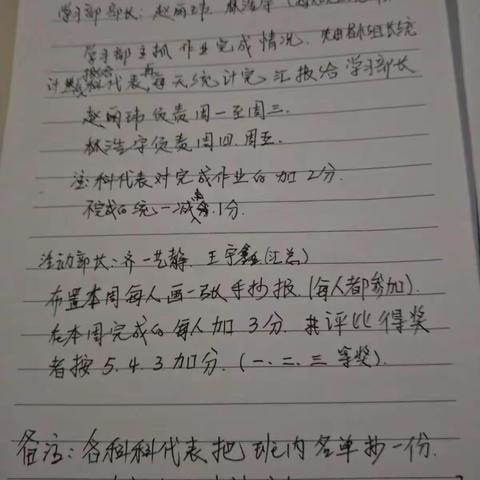 学习部部长：赵丽玮、林浩宇
学习部主抓作业完成情况.先由各小组长统
计报给科代表,再每天统计完汇报给学习部长
赵丽玮负责周一至周三.
林浩宇负责周四.周五.
注:科代表对完成作业的加2分.
不完成的统一减1分.
活动部长:齐一艺静、王宇鑫(汇总)
布置本周每人画一张手抄报.(每人都参加).
在本周完成的每人加3分.共评比得奖
者按5.4.3加分.(一、二、三等奖).
备注:各科科代表把班内名单抄一份.